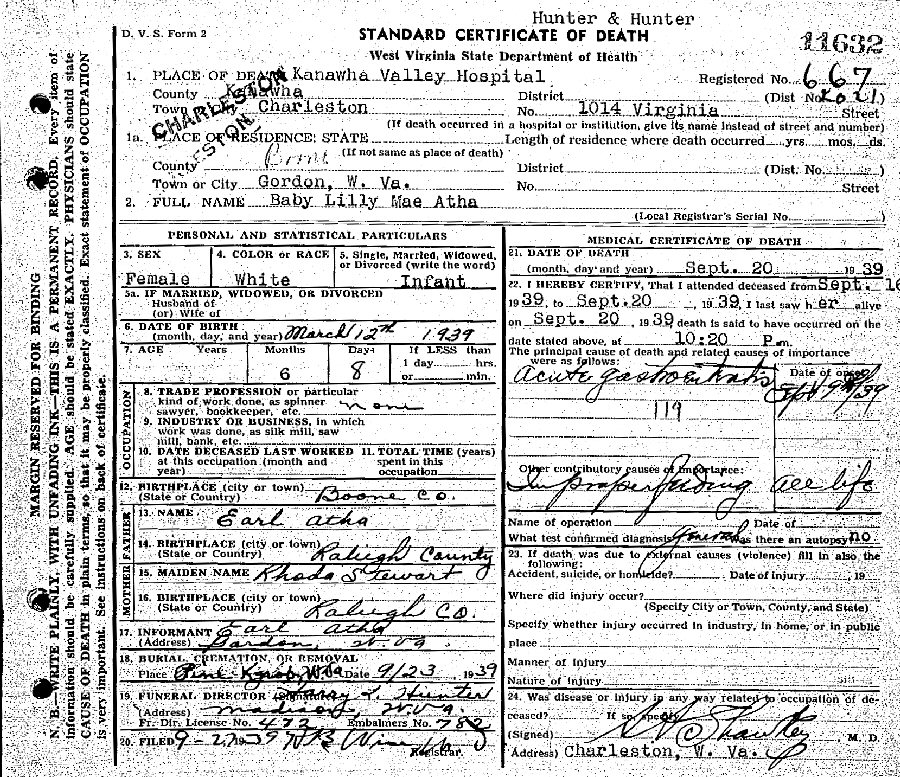 Hunter & Hunter
D. V. S. Form 2
STANDARD CERTIFICATE OF DEATH
11632
West Virginia State Department of Health
1. PLACE OF DEATH Kanawha Valley Hospital
Registered No. 667
County Kanawha
District
(Dist No. 
Town Charleston
No. 1014 Virginia Street
CHARLESTON
(If death occurred in a hospital or institution, give its name instead of street and number)
1a. PLACE OF RESIDENCE: STATE
Length of residence where death occurred yrs. mos. ds.
County Boone
(If not same as place of death)
District
(Dist. No. )
Town or City Gordon, W. Va.
No. Street
2. FULL NAME Baby Lilly Mae Atha
(Local Registrar's Serial No. )
MARGIN RESERVED FOR BINDING
N. B. WRITE PLAINLY, WITH UNFADING INK—THIS IS A PERMANENT RECORD. Every item of
information should be carefully supplied. AGE should be stated EXACTLY. PHYSICIANS should state
CAUSE OF DEATH in plain terms, so that it may be properly classified. Exact statement of OCCUPATION
is very important. See instructions on back of certificate.
PERSONAL AND STATISTICAL PARTICULARS
3. SEX
Female
4. COLOR or RACE
White
5. Single, Married, Widowed,
or Divorced (write the word)
Infant
5a. IF MARRIED, WIDOWED, OR DIVORCED
Husband of
(or) Wife of
6. DATE OF BIRTH
(month, day, and year) March 12th 1939
7. AGE Years Months Days If LESS than
1 day hrs.
6 8 or min.
OCCUPATION
8. TRADE PROFESSION or particular
kind of work done, as spinner
sawyer, bookkeeper, etc. none
9. INDUSTRY OR BUSINESS, in which
work was done, as silk mill, saw
mill, bank, etc.
10. DATE DECEASED LAST WORKED
at this occupation (month and
year)
11. TOTAL TIME (years)
spent in this
occupation
12. BIRTHPLACE (city or town)
(State or Country) Boone Co.
FATHER
13. NAME Earl Atha
14. BIRTHPLACE (city or town)
(State or Country) Raleigh County
MOTHER
15. MAIDEN NAME Rhoda Stewart
16. BIRTHPLACE (city or town)
(State or Country) Raleigh Co.
17. INFORMANT Earl Atha
(Address) Gordon, W. Va
18. BURIAL, CREMATION, OR REMOVAL
Place Pine Knob, W. Va Date 9/23 1939
19. FUNERAL DIRECTOR L. Hunter
(Address) Madison, W. Va.
Fr. Dir. License No. 472 Embalmers No. 782
20. FILED 9-27-1939
Registrar.
MEDICAL CERTIFICATE OF DEATH
21. DATE OF DEATH
(month, day and year) Sept. 20 1939
22. I HEREBY CERTIFY, That I attended deceased from Sept. 16
1939, to Sept.20, 1939, I last saw her alive
on Sept. 20, 1939 death is said to have occurred on the
date stated above, at 10:20 P.m.
The principal cause of death and related causes of importance
were as follows:
Date of onset
Acute gastroenteritis
119
Other contributory causes of importance:
Improper feeding all life
Name of operation Date of
What test confirmed diagnosis? Was there an autopsy no
23. If death was due to external causes (violence) fill in also the
following:
Accident, suicide, or homicide? Date of injury , 19
Where did injury occur?
(Specify City or Town, County, and State)
Specify whether injury occurred in industry, in home, or in public
place
Manner of injury
Nature of injury
24. Was disease or injury in any way related to occupation of de-
ceased? If so, specify
(Signed) M. D.
Address) Charleston, W. Va.